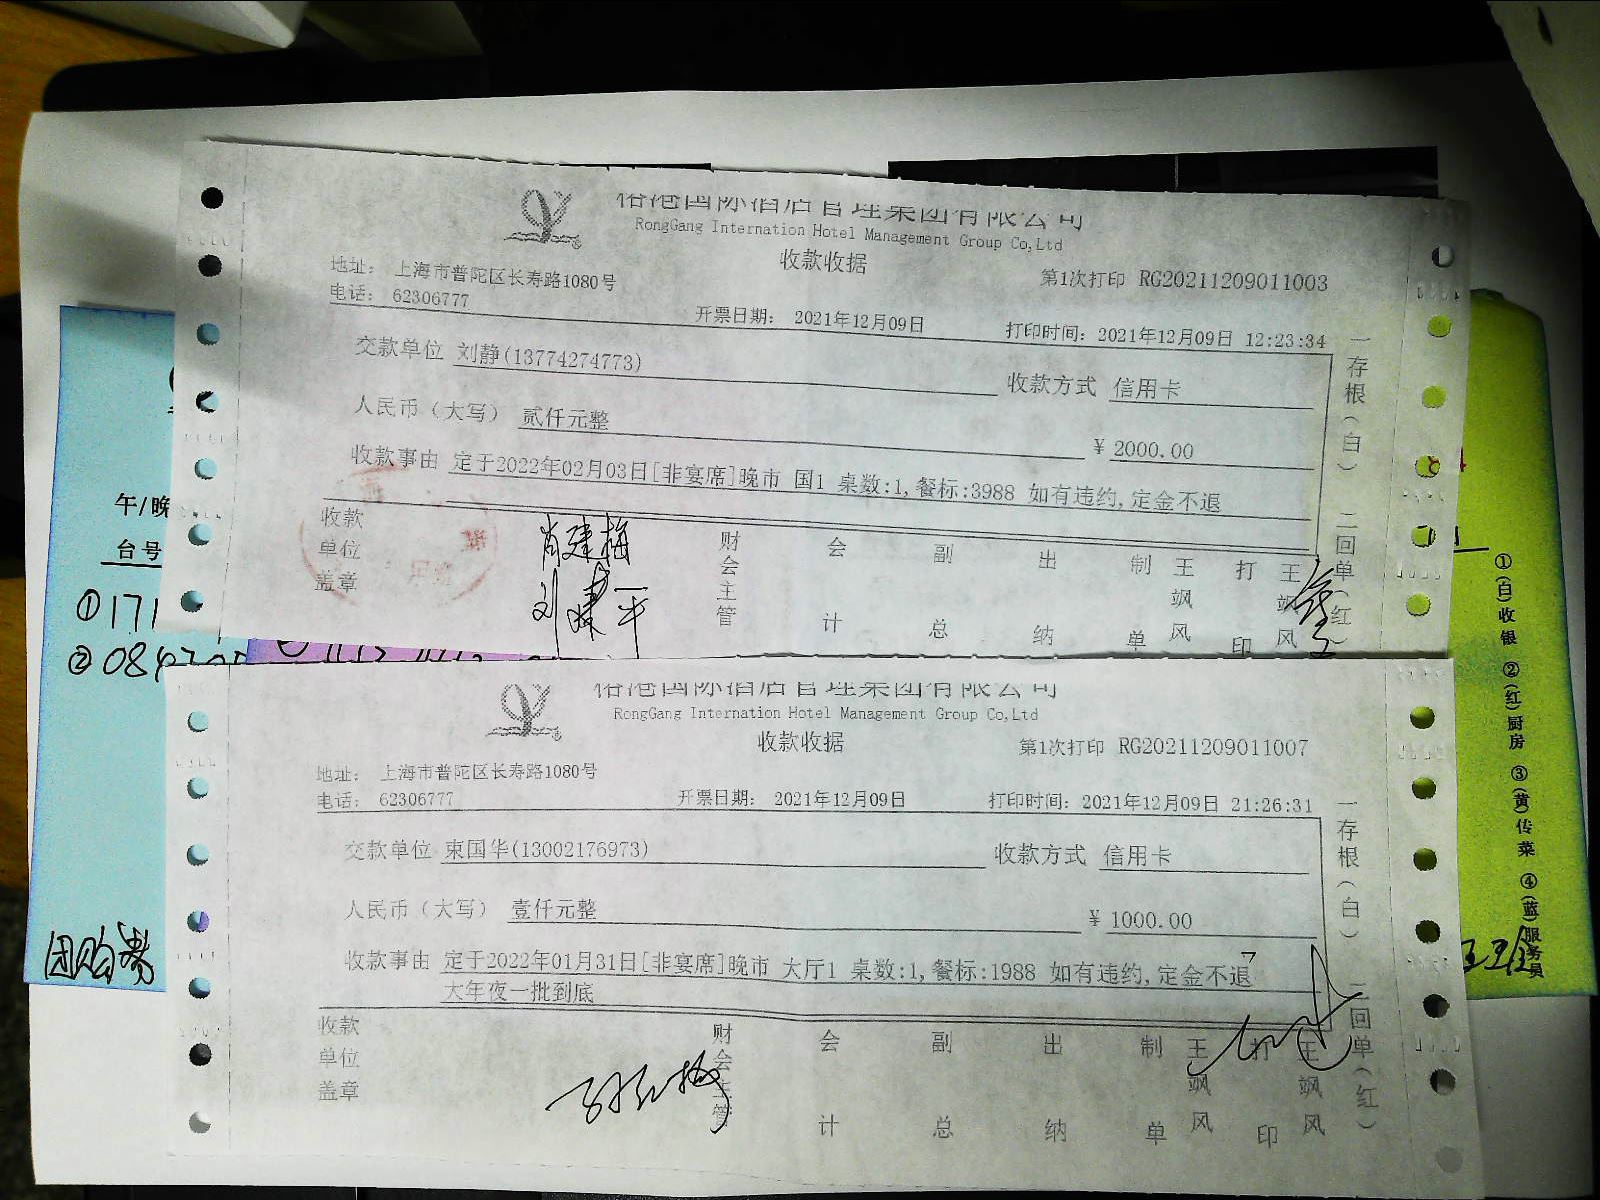 RongGang Internation Hotel Management Group Co,Ltd
收款收据
地址： 上海市普陀区长寿路1080号
第1次打印 RG20211209011003
电话： 62306777
开票日期： 2021年12月09日
打印时间：2021年12月09日 12:23:34
交款单位 刘静(13774274773)
收款方式 信用卡
人民币（大写） 贰仟元整
¥ 2000.00
收款事由 定于2022年02月03日[非宴席]晚市 国1 桌数:1,餐标:3988 如有违约,定金不退
收款单位盖章
肖建梅
刘建平
财会主管
会计
副总
出纳
制单
王飒风
打印
王飒风
一存根（白） 二回单（红）
RongGang Internation Hotel Management Group Co,Ltd
收款收据
第1次打印 RG20211209011007
地址： 上海市普陀区长寿路1080号
电话： 62306777
开票日期： 2021年12月09日
打印时间：2021年12月09日 21:26:31
交款单位 束国华(13002176973)
收款方式 信用卡
人民币（大写） 壹仟元整
¥ 1000.00
收款事由 定于2022年01月31日[非宴席]晚市 大厅1 桌数:1,餐标:1988 如有违约,定金不退
大年夜一批到底
收款单位盖章
财会主管
会计
副总
出纳
制单
王飒风
打印
王飒风
一存根（白） 二回单（红）
午/晚
台号
①171
团购券
①(白)收银 ②(红)厨房 ③(黄)传菜 ④(蓝)服务员